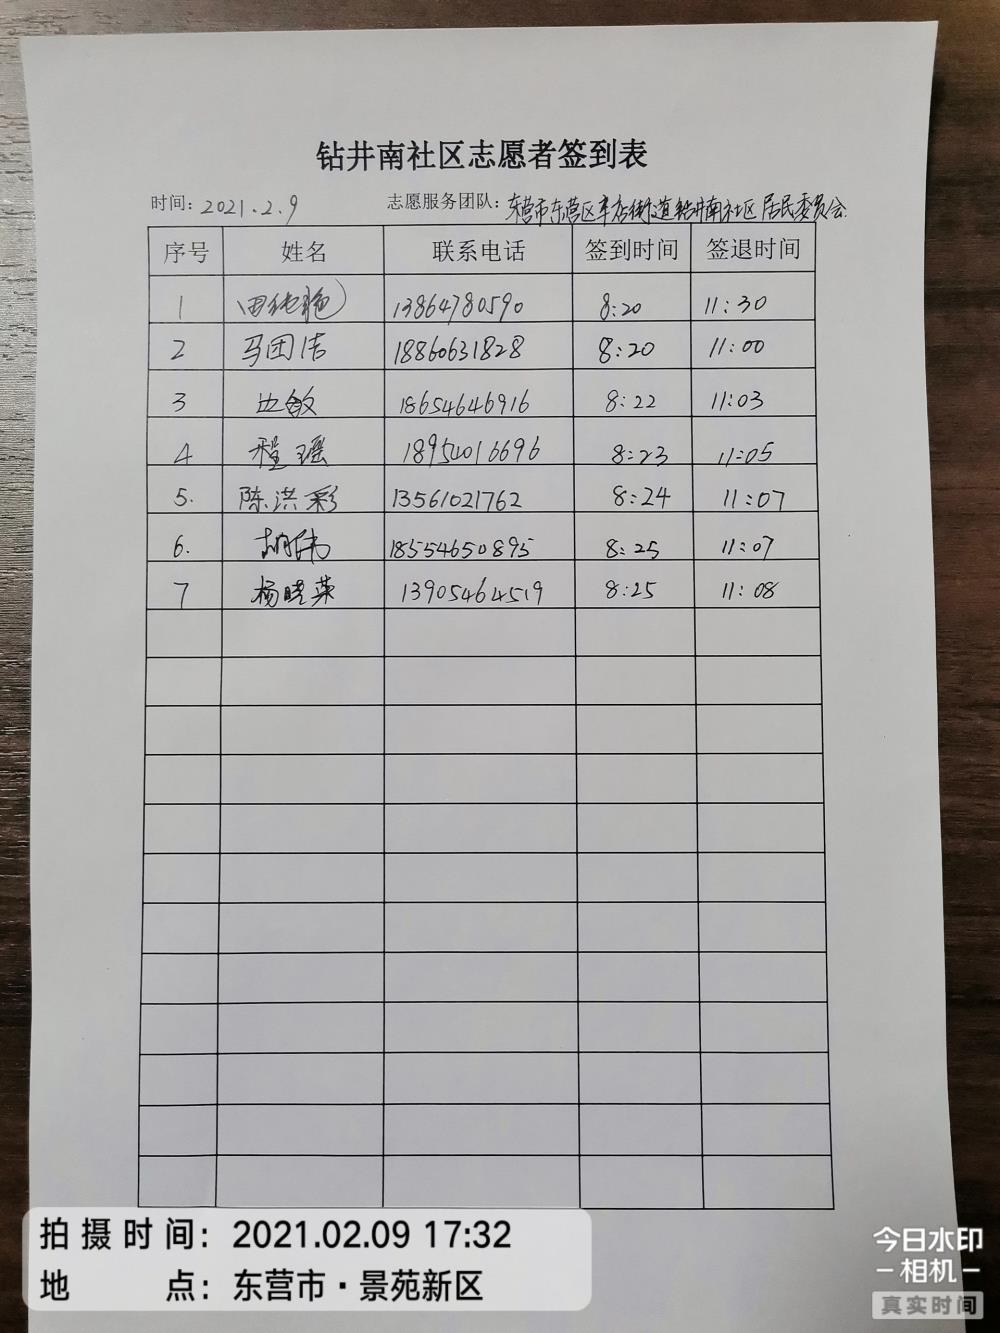 钻井南社区志愿者签到表
时间：2021.2.9 志愿服务团队：东营市东营区辛店街道钻井南社区居民委员会
序号 姓名 联系电话 签到时间 签退时间
1 田纯艳 13864780590 8:20 11:30
2 马团洁 18860631828 8:20 11:00
3 边敏 18654646916 8:22 11:03
4 程瑶 18954016696 8:23 11:05
5. 陈洪彩 13561021762 8:24 11:07
6. 胡伟 18554650895 8:25 11:07
7 杨晓英 13905464519 8:25 11:08
拍摄时间：2021.02.09 17:32
地点：东营市·景苑新区
今日水印
相机
真实时间